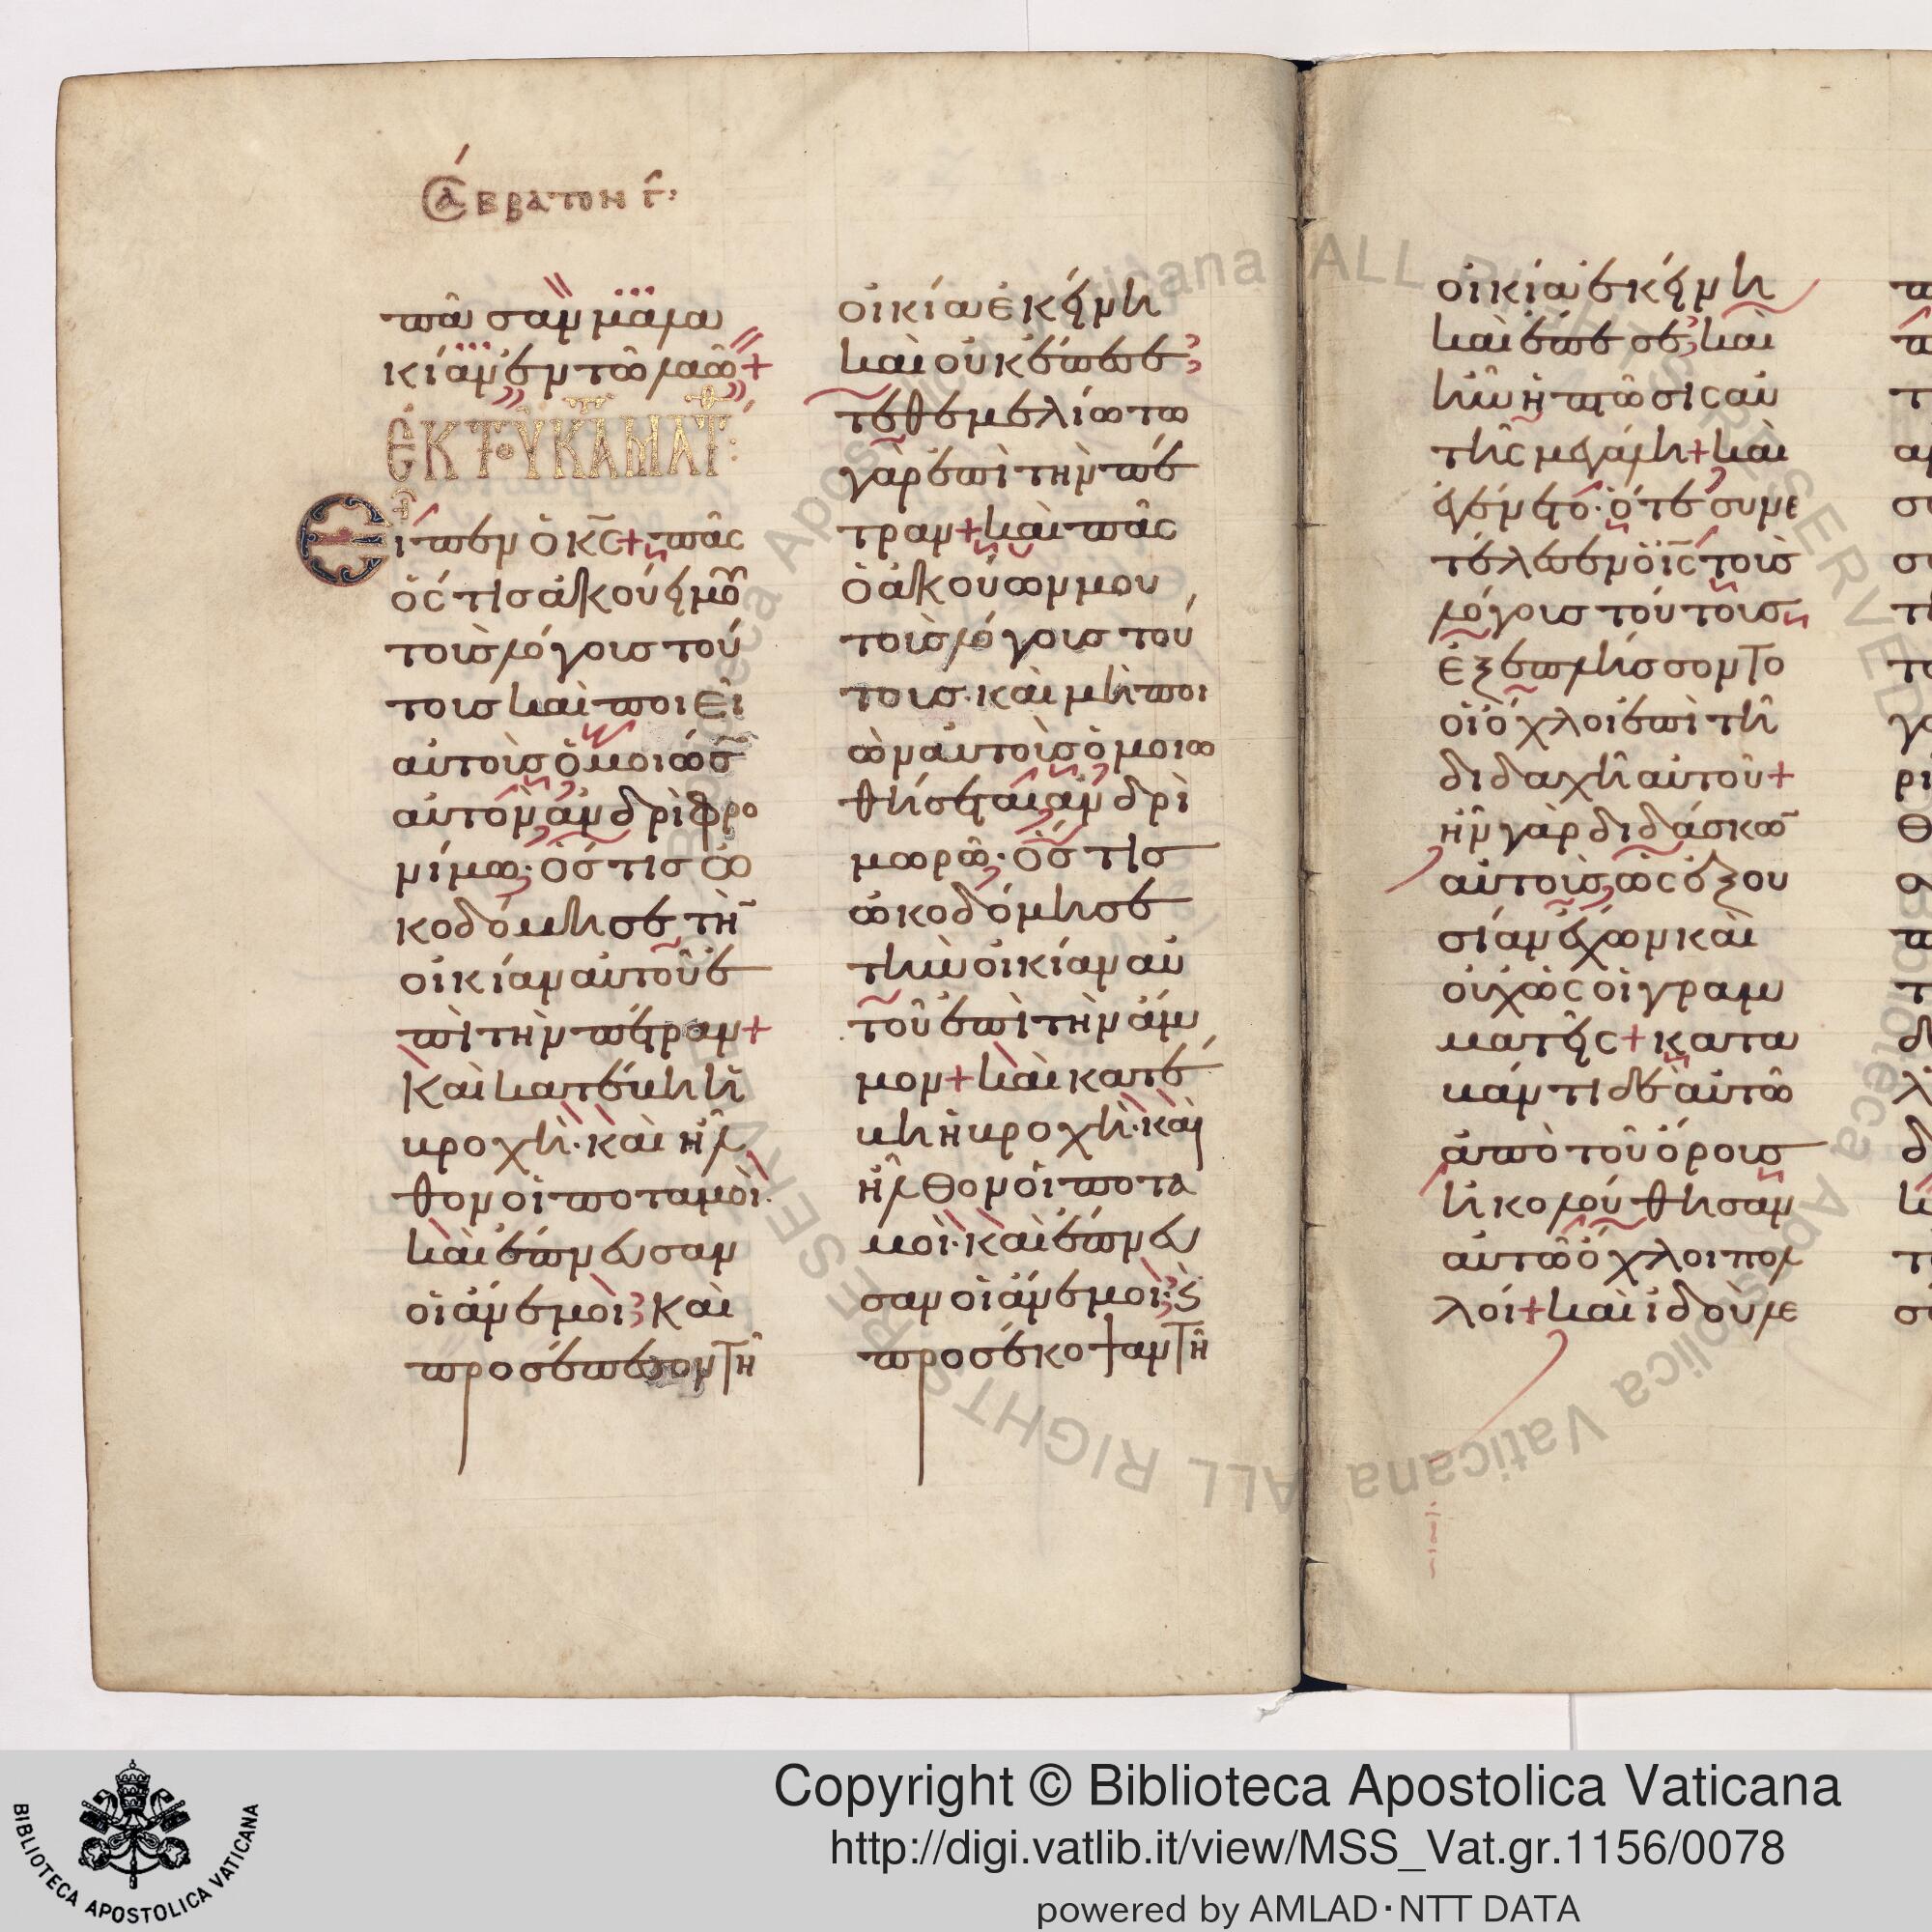 Σάββατον γ:
πᾶσαν μαλα
κίαν ἐν τῶ λαῶ+
ἐκ τοῦ κατὰ Ματθ:
Εἶπεν ὁ κς+ πᾶς
ὅστις ἀκούει μου
τοὺς λόγους τού
τους καὶ ποιεῖ
αὐτοὺς ὁμοιώσω
αὐτὸν ἀνδρὶ φρο
νίμω· ὅστις ὠ
κοδόμησε τὴν
οἰκίαν αὐτοῦ ἐ
πὶ τὴν πέτραν+
Καὶ κατέβη ἡ
βροχὴ· καὶ ἦλ
θον οἱ ποταμοὶ·
καὶ ἔπνευσαν
οἱ ἄνεμοι; καὶ
προσέπεσον τῆ
οἰκία ἐκείνη
καὶ οὐκ ἔπεσε;
τεθεμελίωτο
γὰρ ἐπὶ τὴν πέ
τραν+ καὶ πᾶς
ὁ ἀκούων μου
τοὺς λόγους τού
τους· καὶ μὴ ποι
ῶν αὐτοὺς ὁμοιω
θήσεται ἀνδρὶ
μωρῶ· ὅστις
ὠκοδόμησε
τὴν οἰκίαν αὐ
τοῦ ἐπὶ τὴν ἄμ
μον+ καὶ κατέ
βη ἡ βροχὴ· καὶ
ἦλθον οἱ ποτα
μοὶ· καὶ ἔπνευ
σαν οἱ ἄνεμοι; ϗ
προσέκοψαν τῆ
οἰκία ἐκείνη
καὶ ἔπεσε; καὶ
ἦν ἡ πτῶσις αὐ
τῆς μεγάλη+ καὶ
ἐγένετο· ὅτε συνε
τέλεσεν ὁ ις τοὺς
λόγους τούτους
ἐξεπλήσσοντο
οἱ ὄχλοι ἐπὶ τῆ
διδαχῆ αὐτοῦ+
ἦν γὰρ διδάσκων
αὐτοὺς ὡς ἐξου
σίαν ἔχων καὶ
οὐχ ὡς οἱ γραμ
ματεῖς+ κατα
βάντι δὲ αὐτῶ
ἀπὸ τοῦ ὄρους
ἠκολούθησαν
αὐτῶ ὄχλοι πολ
λοί+ καὶ ἰδοὺ λε
Copyright © Biblioteca Apostolica Vaticana
http://digi.vatlib.it/view/MSS_Vat.gr.1156/0078
powered by AMLAD·NTT DATA
BIBLIOTECA APOSTOLICA VATICANA